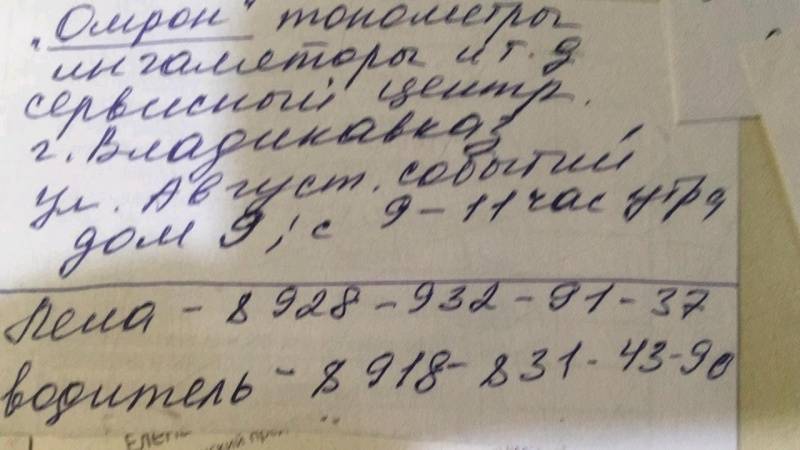 "Омрон" тонометры
ингаляторы и т.д
сервисный центр.
г. Владикавказ,
ул. Август. событий
дом 9, с 9-11 час утра
- 8 928-932-91-37
водитель - 8 918-831-43-90